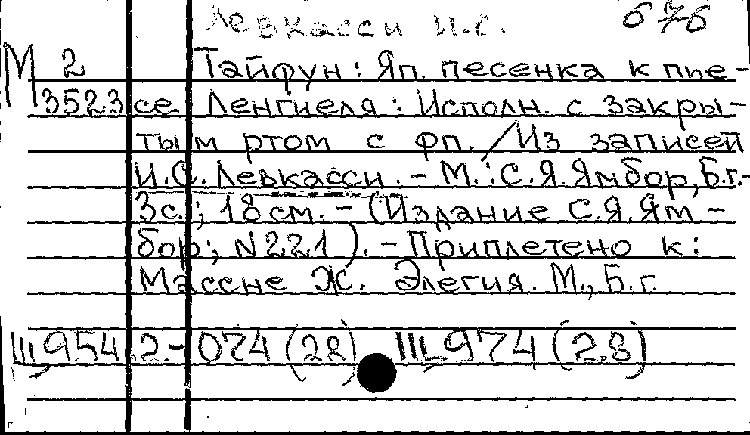 Левкасси И.С. 676
М 2 Тайфун: Яп. песенка к пье-
3523 се Ленгиеля: Исполн. с закры-
тым ртом с фп. / Из записей
И.С. Левкасси. - М.: С.Я. Ямбор, Б.г.-
3с.; 18 см. - (Издание С.Я. Ям-
бор; N221). - Приплетено к:
Массне Ж. Элегия. М., Б.г.
Щ954.2-074(28) Щ974(2.8)